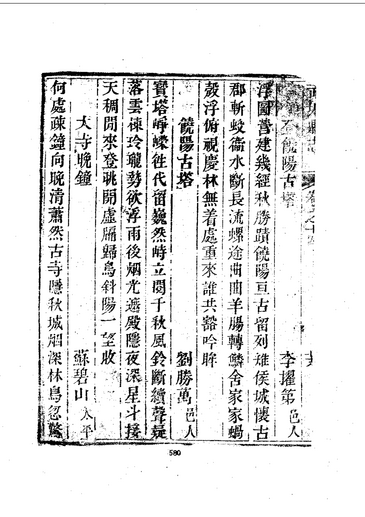 饒陽古塔 李擢第 邑人
浮圖普建幾經秋勝蹟饒陽亘古留列雉侯城懷古
郡斬蛟衞水斷長流螺途曲曲羊腸轉鱗舍家家蝸
殼浮俯視慶林無着處重來誰共豁吟眸
饒陽古塔 劉勝萬 邑人
寳塔崢嶸徃代留巍然峙立閱千秋風鈴斷續聲疑
落雲棟玲瓏勢欲浮雨後烟光遮殿隱夜深星斗接
天稠閒來登眺開虛牖歸鳥斜陽一望收
大寺晚鐘 蘇碧山 太平
何處疎鐘向晚清蕭然古寺隱秋城烟深林鳥忽驚
580